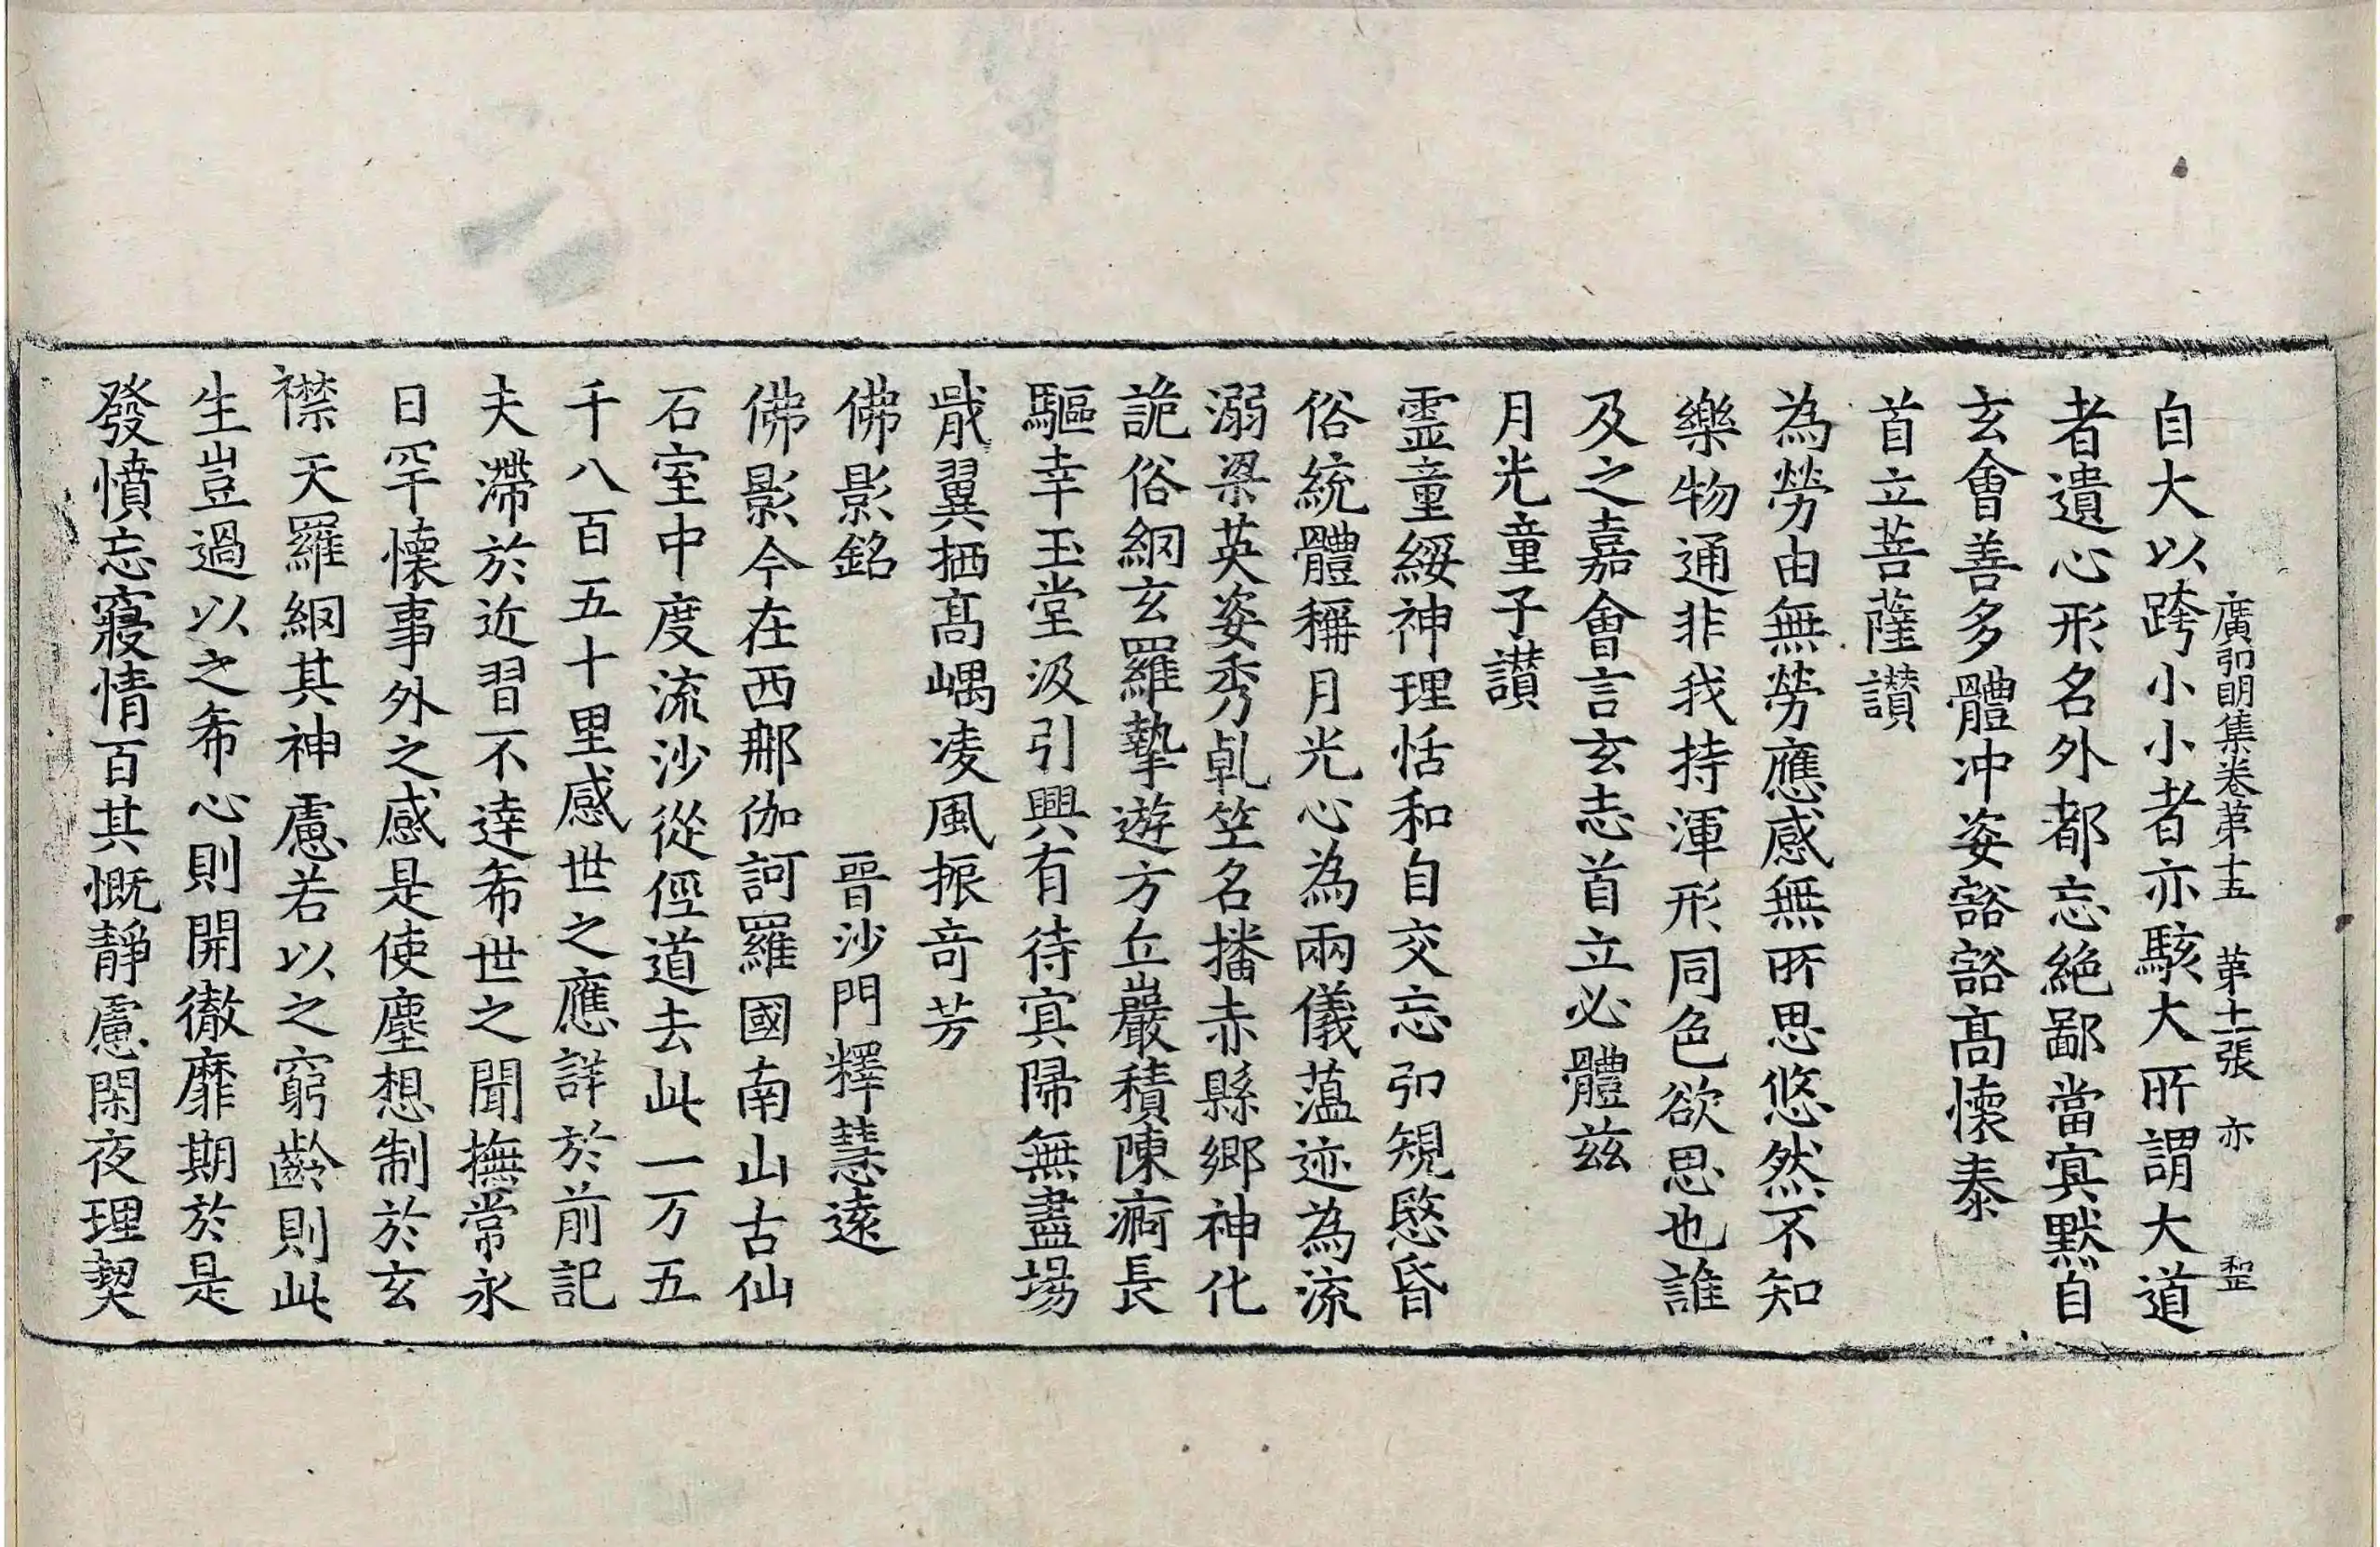 廣弘明集卷第十五 第十二張 亦
自大以跨小小者亦駭大所謂大道
者遺心形名外都忘絕鄙當冥默自
玄會善多體冲姿豁豁髙懷泰
首立菩薩讃
為勞由無勞應感無所思悠然不知
樂物通非我持渾形同色欲思也誰
及之嘉會言玄志首立必體兹
月光童子讃
霊童綏神理恬和自交忘弘規愍昏
俗統體稱月光心為兩儀蕰迹為流
溺梁英姿秀乹笠名播赤縣鄉神化
詭俗網玄羅摯遊方丘巖積陳痾長
驅幸玉堂汲引興有待冥歸無盡場
戢翼栖髙嵎凌風振奇芳
佛影銘 晉沙門釋慧遠
佛影今在西那伽訶羅國南山古仙
石室中度流沙從俓道去此一万五
千八百五十里感世之應詳於前記
夫滯於近習不達希世之聞撫常永
日罕懷事外之感是使塵想制於玄
襟天羅網其神慮若以之窮齡則此
生豈過以之希心則開徹靡期於是
發憤忘寢情百其慨靜慮閑夜理契